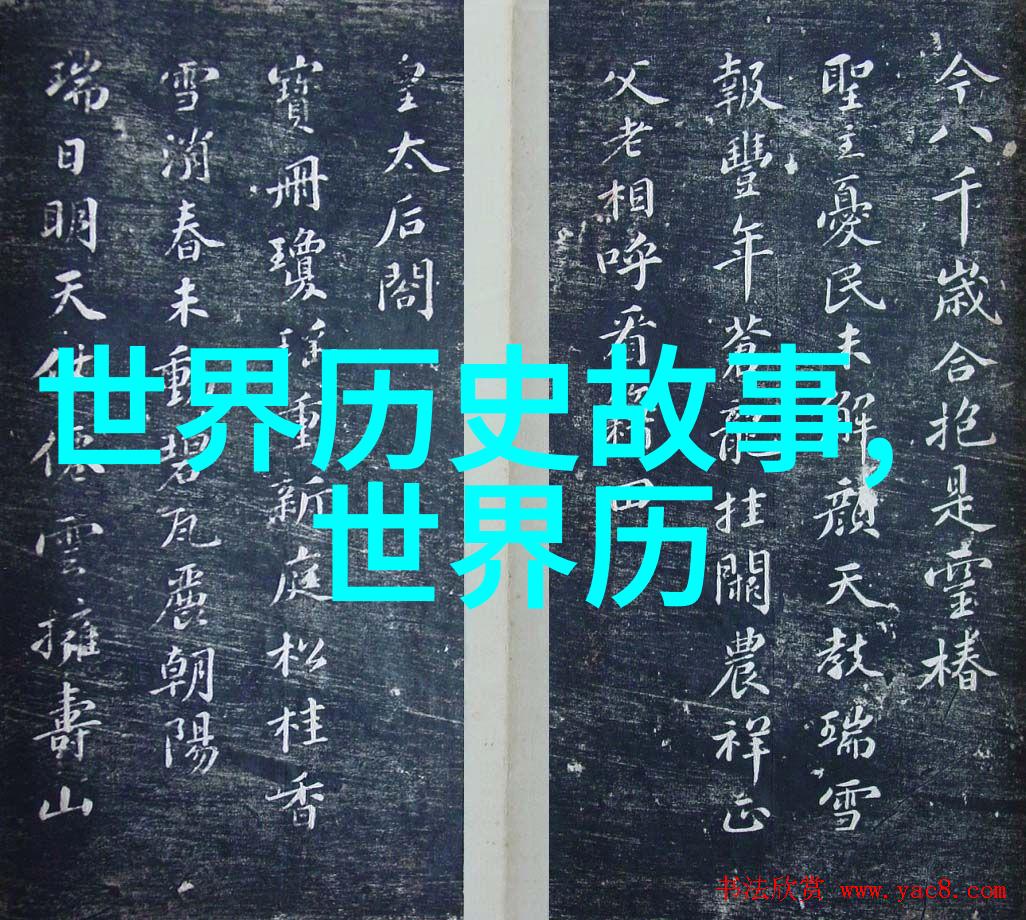 今八千歲合抱是靈椿
聖主憂民未解顏天教瑞雪
報豐年蒼龍挂闕農祥正
父老相呼看籍田
皇太后閣
寶冊瓊瑤重新庭松桂香
雪消春未動碧瓦麗朝陽
瑞日明天仗僊雲擁壽山
世界历史故事,
世界历
书法欣赏 www.yac8.com